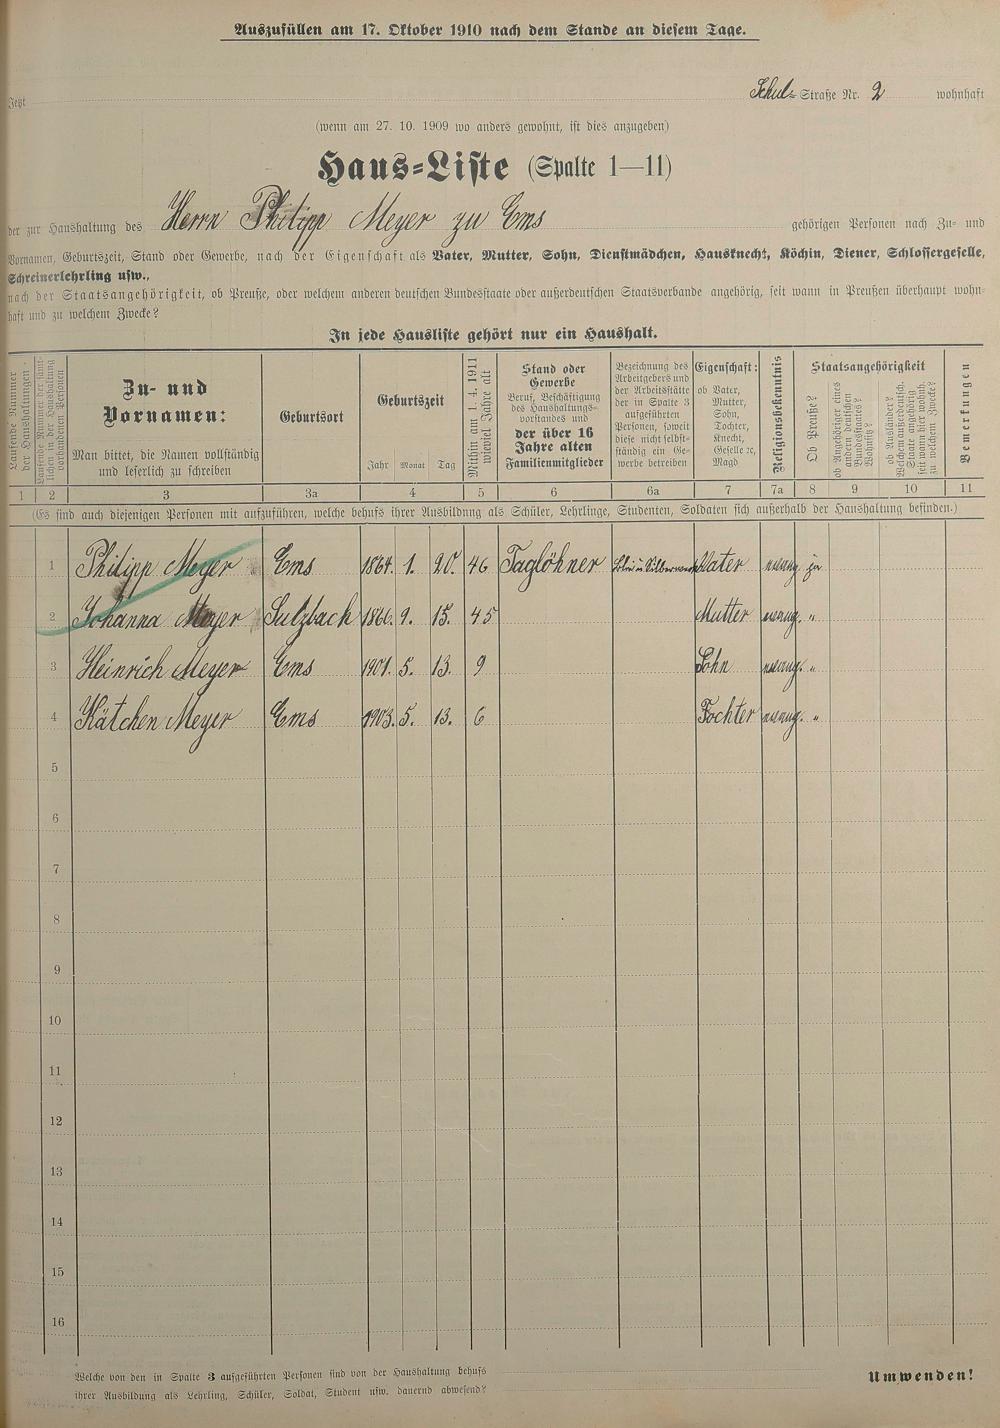 Auszufüllen am 17. Oktober 1910 nach dem Stande an diesem Tage.
Jetzt Schul- Straße Nr. 2 wohnhaft
(wenn am 27. 10. 1909 wo anders gewohnt, ist dies anzugeben)
Haus-Liste (Spalte 1—11)
der zur Haushaltung des Herrn Philipp Meyer zu Ems gehörigen Personen nach Zu- und
Vornamen, Geburtszeit, Stand oder Gewerbe, nach der Eigenschaft als Vater, Mutter, Sohn, Dienstmädchen, Hausknecht, Köchin, Diener, Schlossergeselle,
Schreinerlehrling usw.,
nach der Staatsangehörigkeit, ob Preuße, oder welchem anderen deutschen Bundesstaate oder außerdeutschen Staatsverbande angehörig, seit wann in Preußen überhaupt wohn-
haft und zu welchem Zwecke?
In jede Hausliste gehört nur ein Haushalt.
Laufende Nummer der Haushaltungen.
Laufende Nummer der sämtlichen in der Haushaltung vorhandenen Personen
Zu- und
Vornamen:
Man bittet, die Namen vollständig
und leserlich zu schreiben
Geburtsort
Geburtszeit
Jahr Monat Tag
Mithin am 1. 4. 1911
wieviel Jahre alt
Stand oder
Gewerbe
Beruf, Beschäftigung
des Haushaltungs-
vorstandes und
der über 16
Jahre alten
Familienmitglieder
Bezeichnung des
Arbeitgebers und
der Arbeitsstätte
der in Spalte 3
aufgeführten
Personen, soweit
diese nicht selbst-
ständig ein Ge-
werbe betreiben
Eigenschaft:
ob Vater,
Mutter,
Sohn,
Tochter,
Knecht,
Geselle ec,
Magd
Religionsbekenntnis
Staatsangehörigkeit
Ob Preuße?
ob Angehöriger eines
andern deutschen
Bundesstaates?
Wohnsitz?
ob Ausländer?
Welchem außerdeutsch.
Staate angehörig
seit wann hier wohnh.
zu welchem Zwecke?
Bemerkungen
1 2 3 3a 4 5 6 6a 7 7a 8 9 10 11
(Es sind auch diejenigen Personen mit aufzuführen, welche behufs ihrer Ausbildung als Schüler, Lehrlinge, Studenten, Soldaten sich außerhalb der Haushaltung befinden.)
1 Philipp Meyer Ems 1864. 1. 20. 46 Taglöhner Vater evang. ja
2 Johanna Meyer Sulzbach 1866. 9. 15. 45 Mutter evang. "
3 Heinrich Meyer Ems 1901. 5. 13. 9 Sohn evang. "
4 Kätchen Meyer Ems 1903. 5. 13. 6 Tochter evang. "
5
6
7
8
9
10
11
12
13
14
15
16
Welche von den in Spalte 3 aufgeführten Personen sind von der Haushaltung behufs
ihrer Ausbildung als Lehrling, Schüler, Soldat, Student usw. dauernd abwesend?
Umwenden!